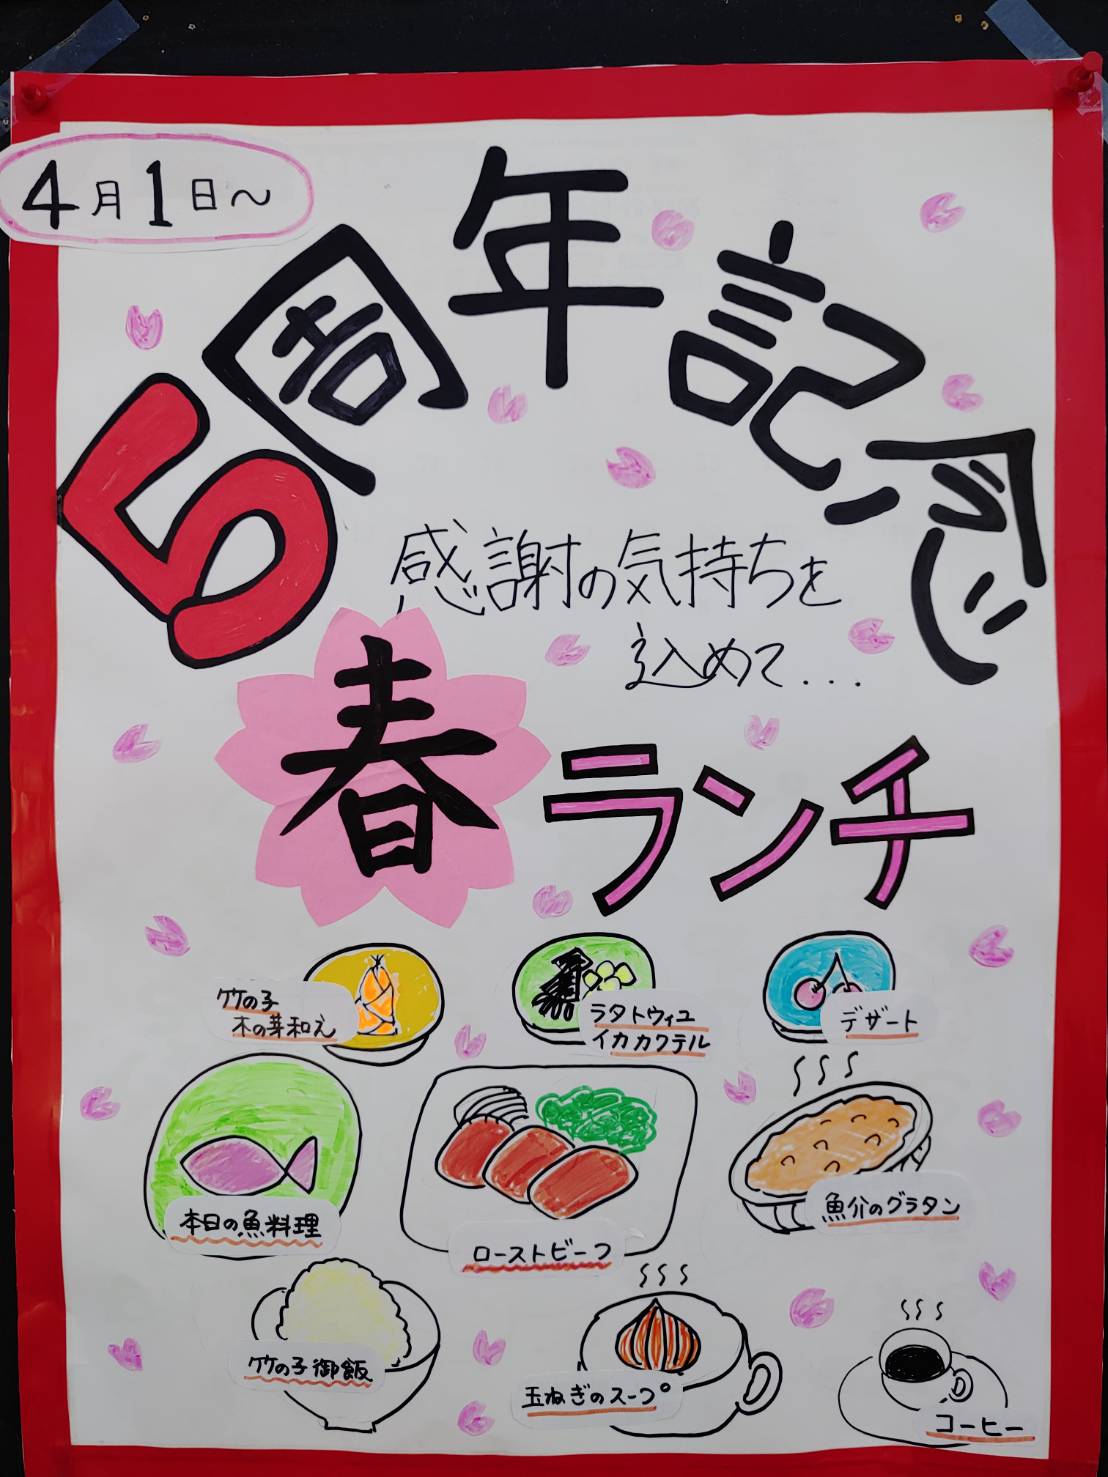 4月1日～
5周年記念
感謝の気持ちを
込めて...
春ランチ
竹の子
木の芽和え
ラタトウィユ
イカカクテル
デザート
本日の魚料理
ローストビーフ
魚介のグラタン
竹の子御飯
玉ねぎのスープ
コーヒー